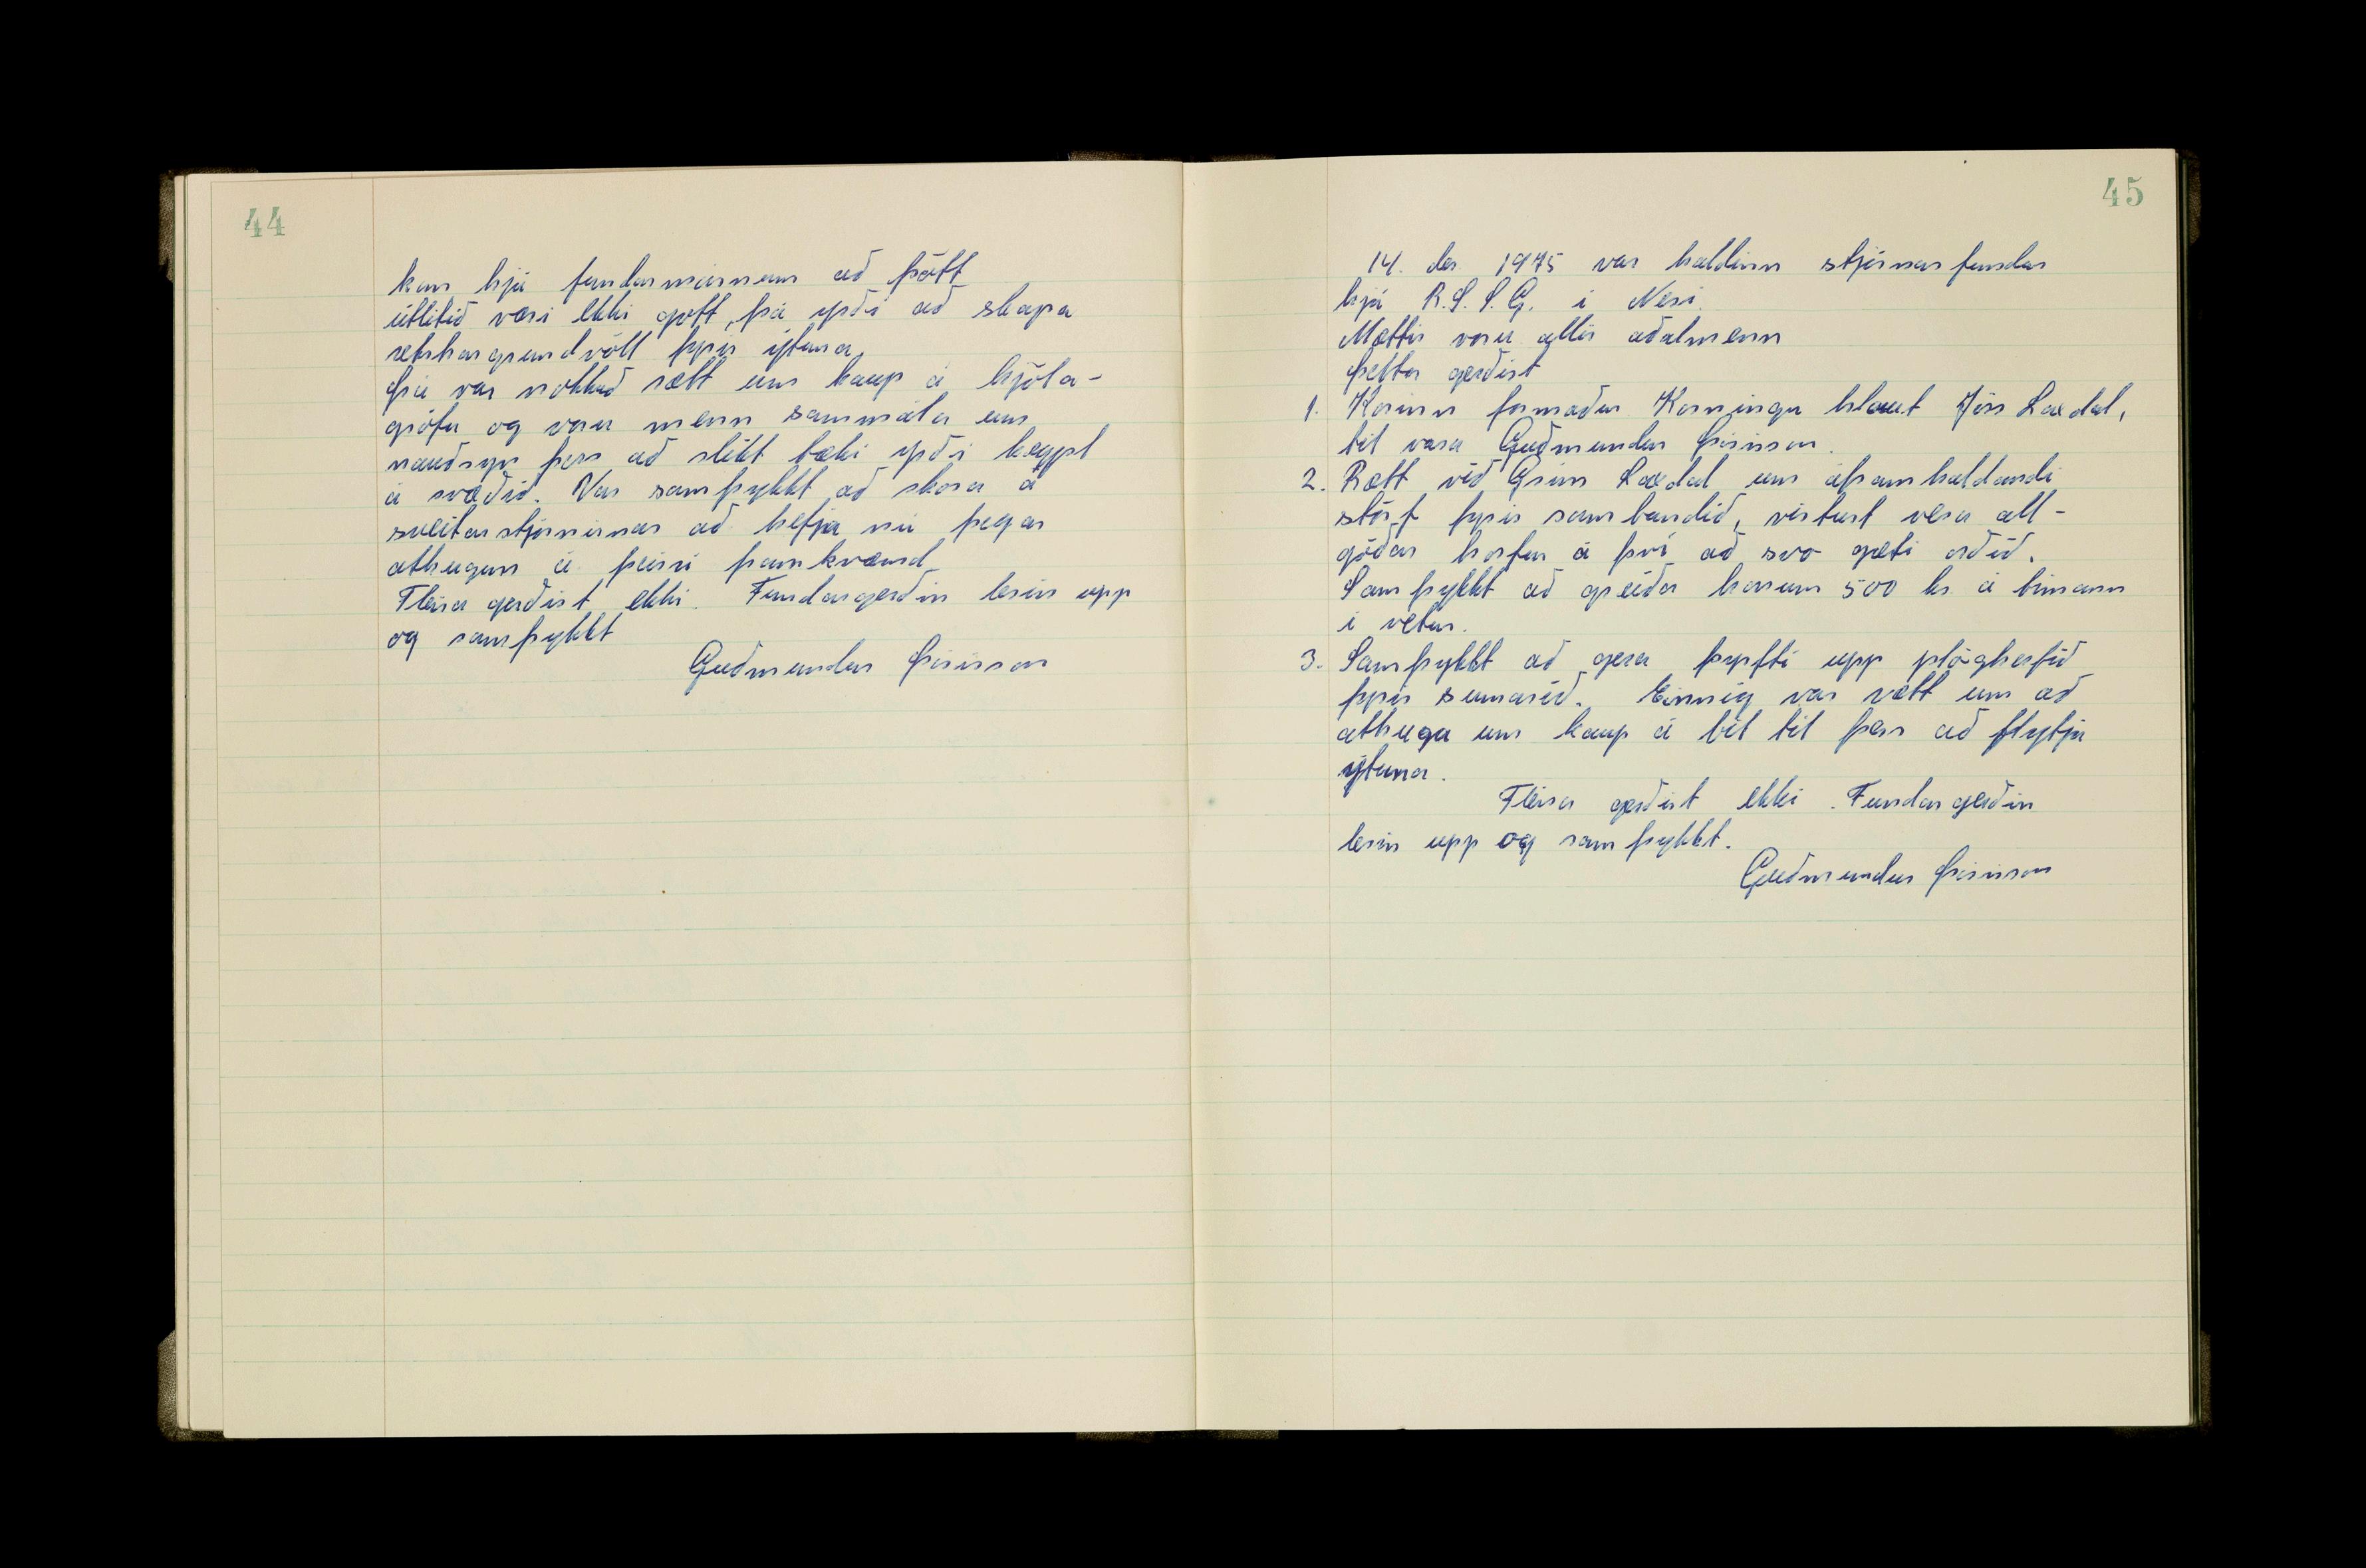 44
kom hjá fundarmönnum að þótt
útlitið væri ekki gott, þá yrði að skapa
rekstrargrundvöll fyrir ýtuna.
Þá var nokkuð rætt um kaup á hjóla-
gröfu og voru menn sammála um
nauðsyn þess að slíkt tæki yrði keypt
á svæðið. Var samþykkt að skora á
sveitarstjórnirnar að hefja nú þegar
athugun á þessri framkvæmd
Fleira gerðist ekki. Fundargerðin lesin upp
og samþykkt
Guðmundur Þórisson
45
14. des 1975 var haldinn stjórnarfundur
hjá R.S.S.G. í Nesi.
Mættir voru allir aðalmenn
Þetta gerðist
1. Kosinn formaður Kosningu hlaut Jón Laxdal,
til vara Guðmundur Þórisson.
2. Rætt við Grím Laxdal um áframhaldandi
störf fyrir sambandið, virtust vera all-
góðar horfur á því að svo gæti orðið.
Samþykkt að greiða honum 500 kr á tímann
í vetur.
3. Samþykkt að gera fyrsti upp plógherfið
fyrir sumarið. Einnig var rætt um að
athuga um kaup á bíl til þess að flytja
ýtuna.
Fleira gerðist ekki. Fundargerðin
lesin upp og samþykkt.
Guðmundur Þórisson